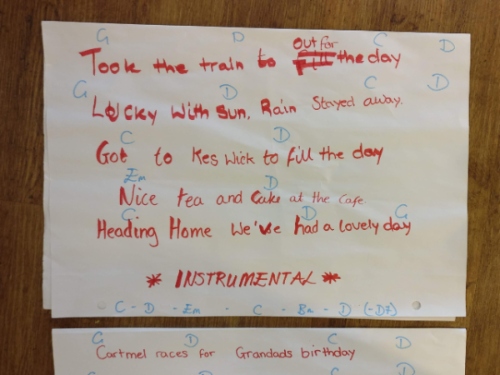 G D C D
out for
Took the train to fill the day
G D C D
Lucky with sun. Rain stayed away.
C D
Got to Keswick to fill the day
Em D
Nice tea and cake at the cafe
G D G
Heading Home We've had a lovely day
* INSTRUMENTAL *
C - D - Em - C - - D (-D7)
G D C D
Cartmel races for Grandads birthday
G C D